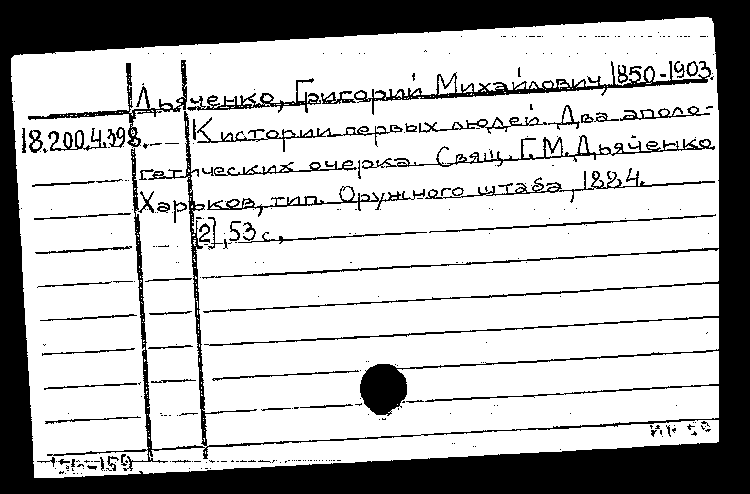 Дьяченко, Григорий Михайлович, 1850-1903
18.200.4.398. К истории первых людей. Два аполо-
гетических очерка. Свящ. Г. М. Дьяченко
Харьков, тип. Окружного штаба, 1884.
[2], 53 с.